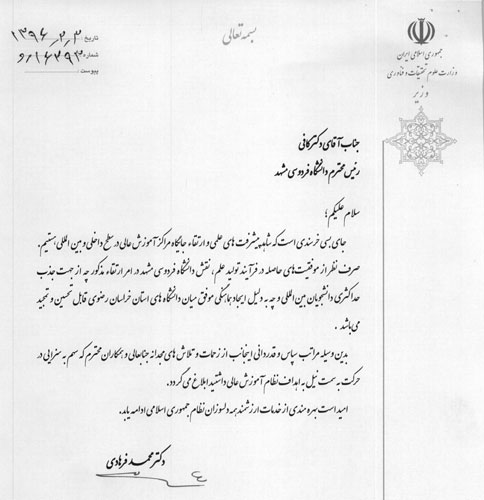 بسمه تعالی
جمهوری اسلامی ایران
وزارت علوم تحقیقات و فناوری
وزیر
تاریخ ۱۳۹۶٫۲٫۳
شماره ۱۶۲۹۳/و
پیوست
جناب آقای دکتر کافی
رئیس محترم دانشگاه فردوسی مشهد
سلام علیکم؛
جای بسی خرسندی است که شاهد پیشرفت های علمی و ارتقاء جایگاه مراکز آموزش عالی در سطح داخلی و بین المللی هستیم.
صرف نظر از موفقیت های حاصله در فرآیند تولید علم، نقش دانشگاه فردوسی مشهد در امر ارتقاء مذکور چه از جهت جذب
حداکثری دانشجویان بین المللی و چه به دلیل ایجاد هماهنگی موفق میان دانشگاه های استان خراسان رضوی قابل تحسین و تمجید
می باشد .
بدین وسیله مراتب سپاس و قدردانی اینجانب از زحمات و تلاش های مجدانه جنابعالی و همکاران محترم که سهم به سزایی در
حرکت به سمت نیل به اهداف نظام آموزش عالی داشتید ابلاغ می گردد.
امید است بهره مندی از خدمات ارزشمند همه دلسوزان نظام جمهوری اسلامی ادامه یابد.
دکتر محمد فرهادی